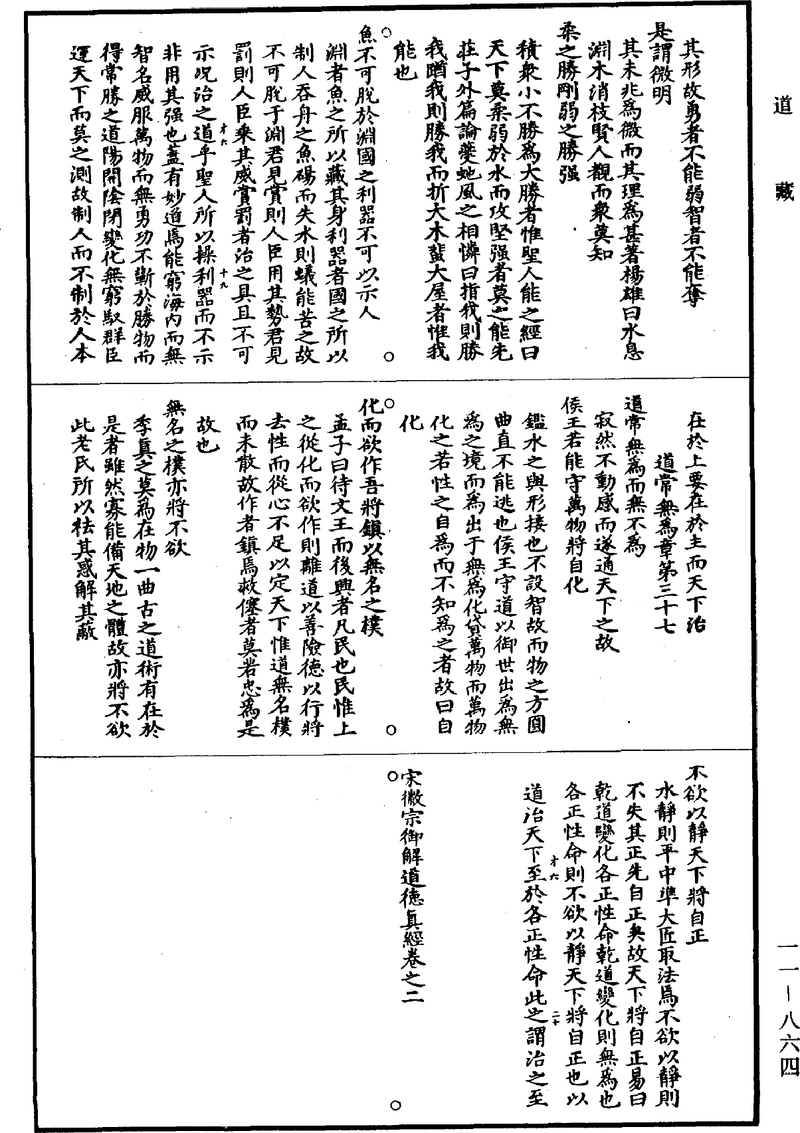 道藏
其形故勇者不能弱智者不能奪
是謂微明
其未兆爲微而其理爲甚著楊雄曰水息
淵木消枝賢人觀而衆莫知
柔之勝剛弱之勝强
積衆小不勝爲大勝者惟聖人能之經曰
天下莫柔弱於水而攻堅强者莫之能先
莊子外篇論夔蛇風之相憐曰指我則勝
我䠓我則勝我而折大木蜚大屋者惟我
能也
魚不可脫於淵國之利器不可以示人
淵者魚之所以藏其身利器者國之所以
制人吞舟之魚碭而失水則蟻能苦之故
不可脫于淵君見賞則人臣用其勢君見
罰則人臣乘其威賞罰者治之具且不可
示况治之道乎聖人所以操利器而不示
才六
十九
非用其强也蓋有妙道焉能窮海内而無
智名威服萬物而無勇功不斬於勝物而
得常勝之道陽開陰閉變化無窮馭群臣
運天下而莫之測故制人而不制於人本
在於上要在於主而天下治
道常無爲章第三十七
道常無爲而無不爲
寂然不動感而遂通天下之故
侯王若能守萬物將自化
鑑水之與形接也不設智故而物之方圓
曲直不能逃也侯王守道以御世出爲無
爲之境而爲出于無爲化貸萬物而萬物
化之若性之自爲而不知爲之者故曰自
化
化而欲作吾將鎮以無名之樸
孟子曰待文王而後興者凡民也民惟上
之從化而欲作則離道以善險德以行將
去性而從心不足以定天下惟道無名樸
而未散故作者鎮焉救僿者莫若忠爲是
故也
無名之樸亦將不欲
季真之莫爲在物一曲古之道術有在於
是者雖然寡能備天地之體故亦將不欲
此老氏所以袪其惑解其蔽
不欲以靜天下將自正
水靜則平中準大匠取法焉不欲以靜則
不失其正先自正矣故天下將自正易曰
乾道變化各正性命乾道變化則無爲也
各正性命則不欲以靜天下將自正也以
才六
二十
道治天下至於各正性命此之謂治之至
宋徽宗御解道德真經卷之二
一一－八六四